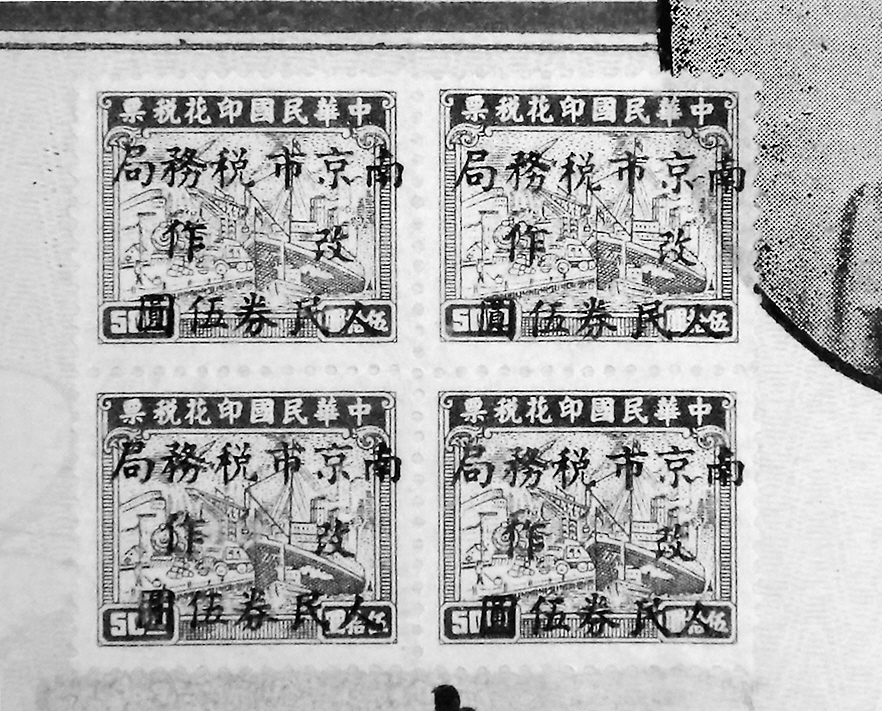 中華民國印花税票
南京市税務局
改作
人民券伍圓
伍拾圓 50
中華民國印花税票
南京市税務局
改作
人民券伍圓
伍拾圓 50
中華民國印花税票
南京市税務局
改作
人民券伍圓
伍拾圓 50
中華民國印花税票
南京市税務局
改作
人民券伍圓
伍拾圓 50